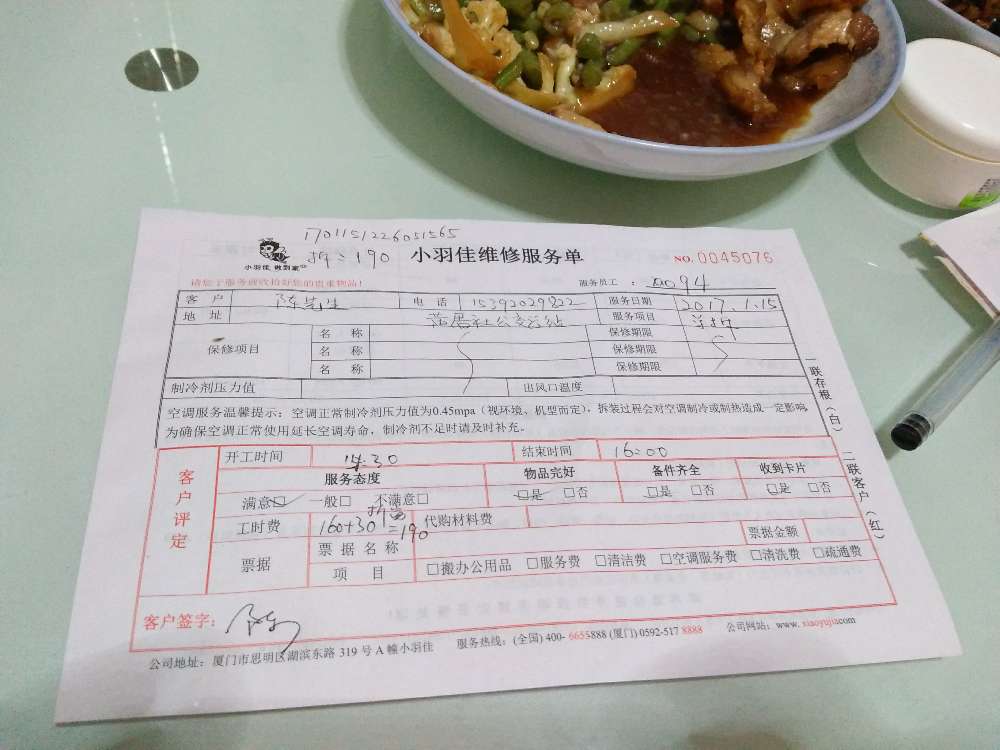 1701151226051565
小羽佳 做到家
小羽佳维修服务单
NO.0045076
请您于服务前收拾好您的贵重物品!
服务员工：0094
客 户 陈先生 电 话 15392029822 服务日期 2017.1.15
地 址 服务项目
保修项目 名 称 保修期限
名 称 保修期限
名 称 保修期限
制冷剂压力值 出风口温度
空调服务温馨提示：空调正常制冷剂压力值为0.45mpa（视环境、机型而定），拆装过程会对空调制冷或制热造成一定影响，
为确保空调正常使用延长空调寿命，制冷剂不足时请及时补充。
一联存根（白） 二联客户（红）
客户评定
开工时间 14:30 结束时间 16:00
服务态度 物品完好 备件齐全 收到卡片
满意□ 一般□ 不满意□ □是 □否 □是 □否 □是 □否
工时费 160+30=190 代购材料费
票据 票据名称 票据金额
项 目 □搬办公用品 □服务费 □清洁费 □空调服务费 □清洗费 □疏通费
客户签字： 陈
公司地址：厦门市思明区湖滨东路 319 号 A 幢小羽佳 服务热线：(全国) 400- 6655888 (厦门) 0592-517 8888 公司网站：www. xiaoyujia.com